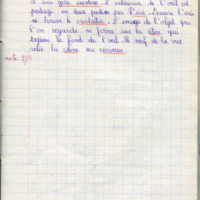 et son gaîne incolore. L'intérieur de l'œil est
partagé en deux parties par l'iris. Derrière l'iris
se trouve le cristallin. L'image de l'objet que
l'on regarde se forme sur la rétine qui
tapisse le fond de l'œil. Le nerf de la vue
relie la rétine au cerveau.